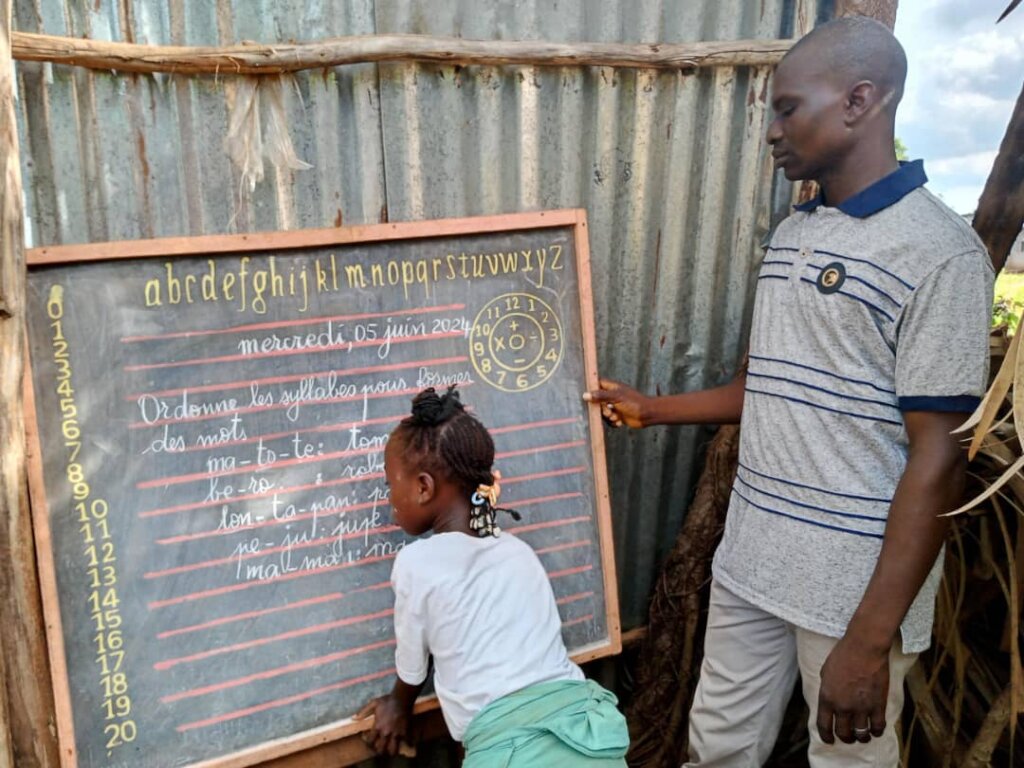 abcdefghijklmnopqrstuvwxyz
mercredi, 05 juin 2024
Ordonne les syllabes pour former
des mots
ma-to-te: tom
be-ro : robe
lon-ta-pan: pa
pe-ju: jupe
ma-man: ma
0
1
2
3
4
5
6
7
8
9
10 0
11 1
12 2
13
14
15
16
17
18
19
20
12
1
2
3
4
5
6
7
8
9
10
11
+
-
×